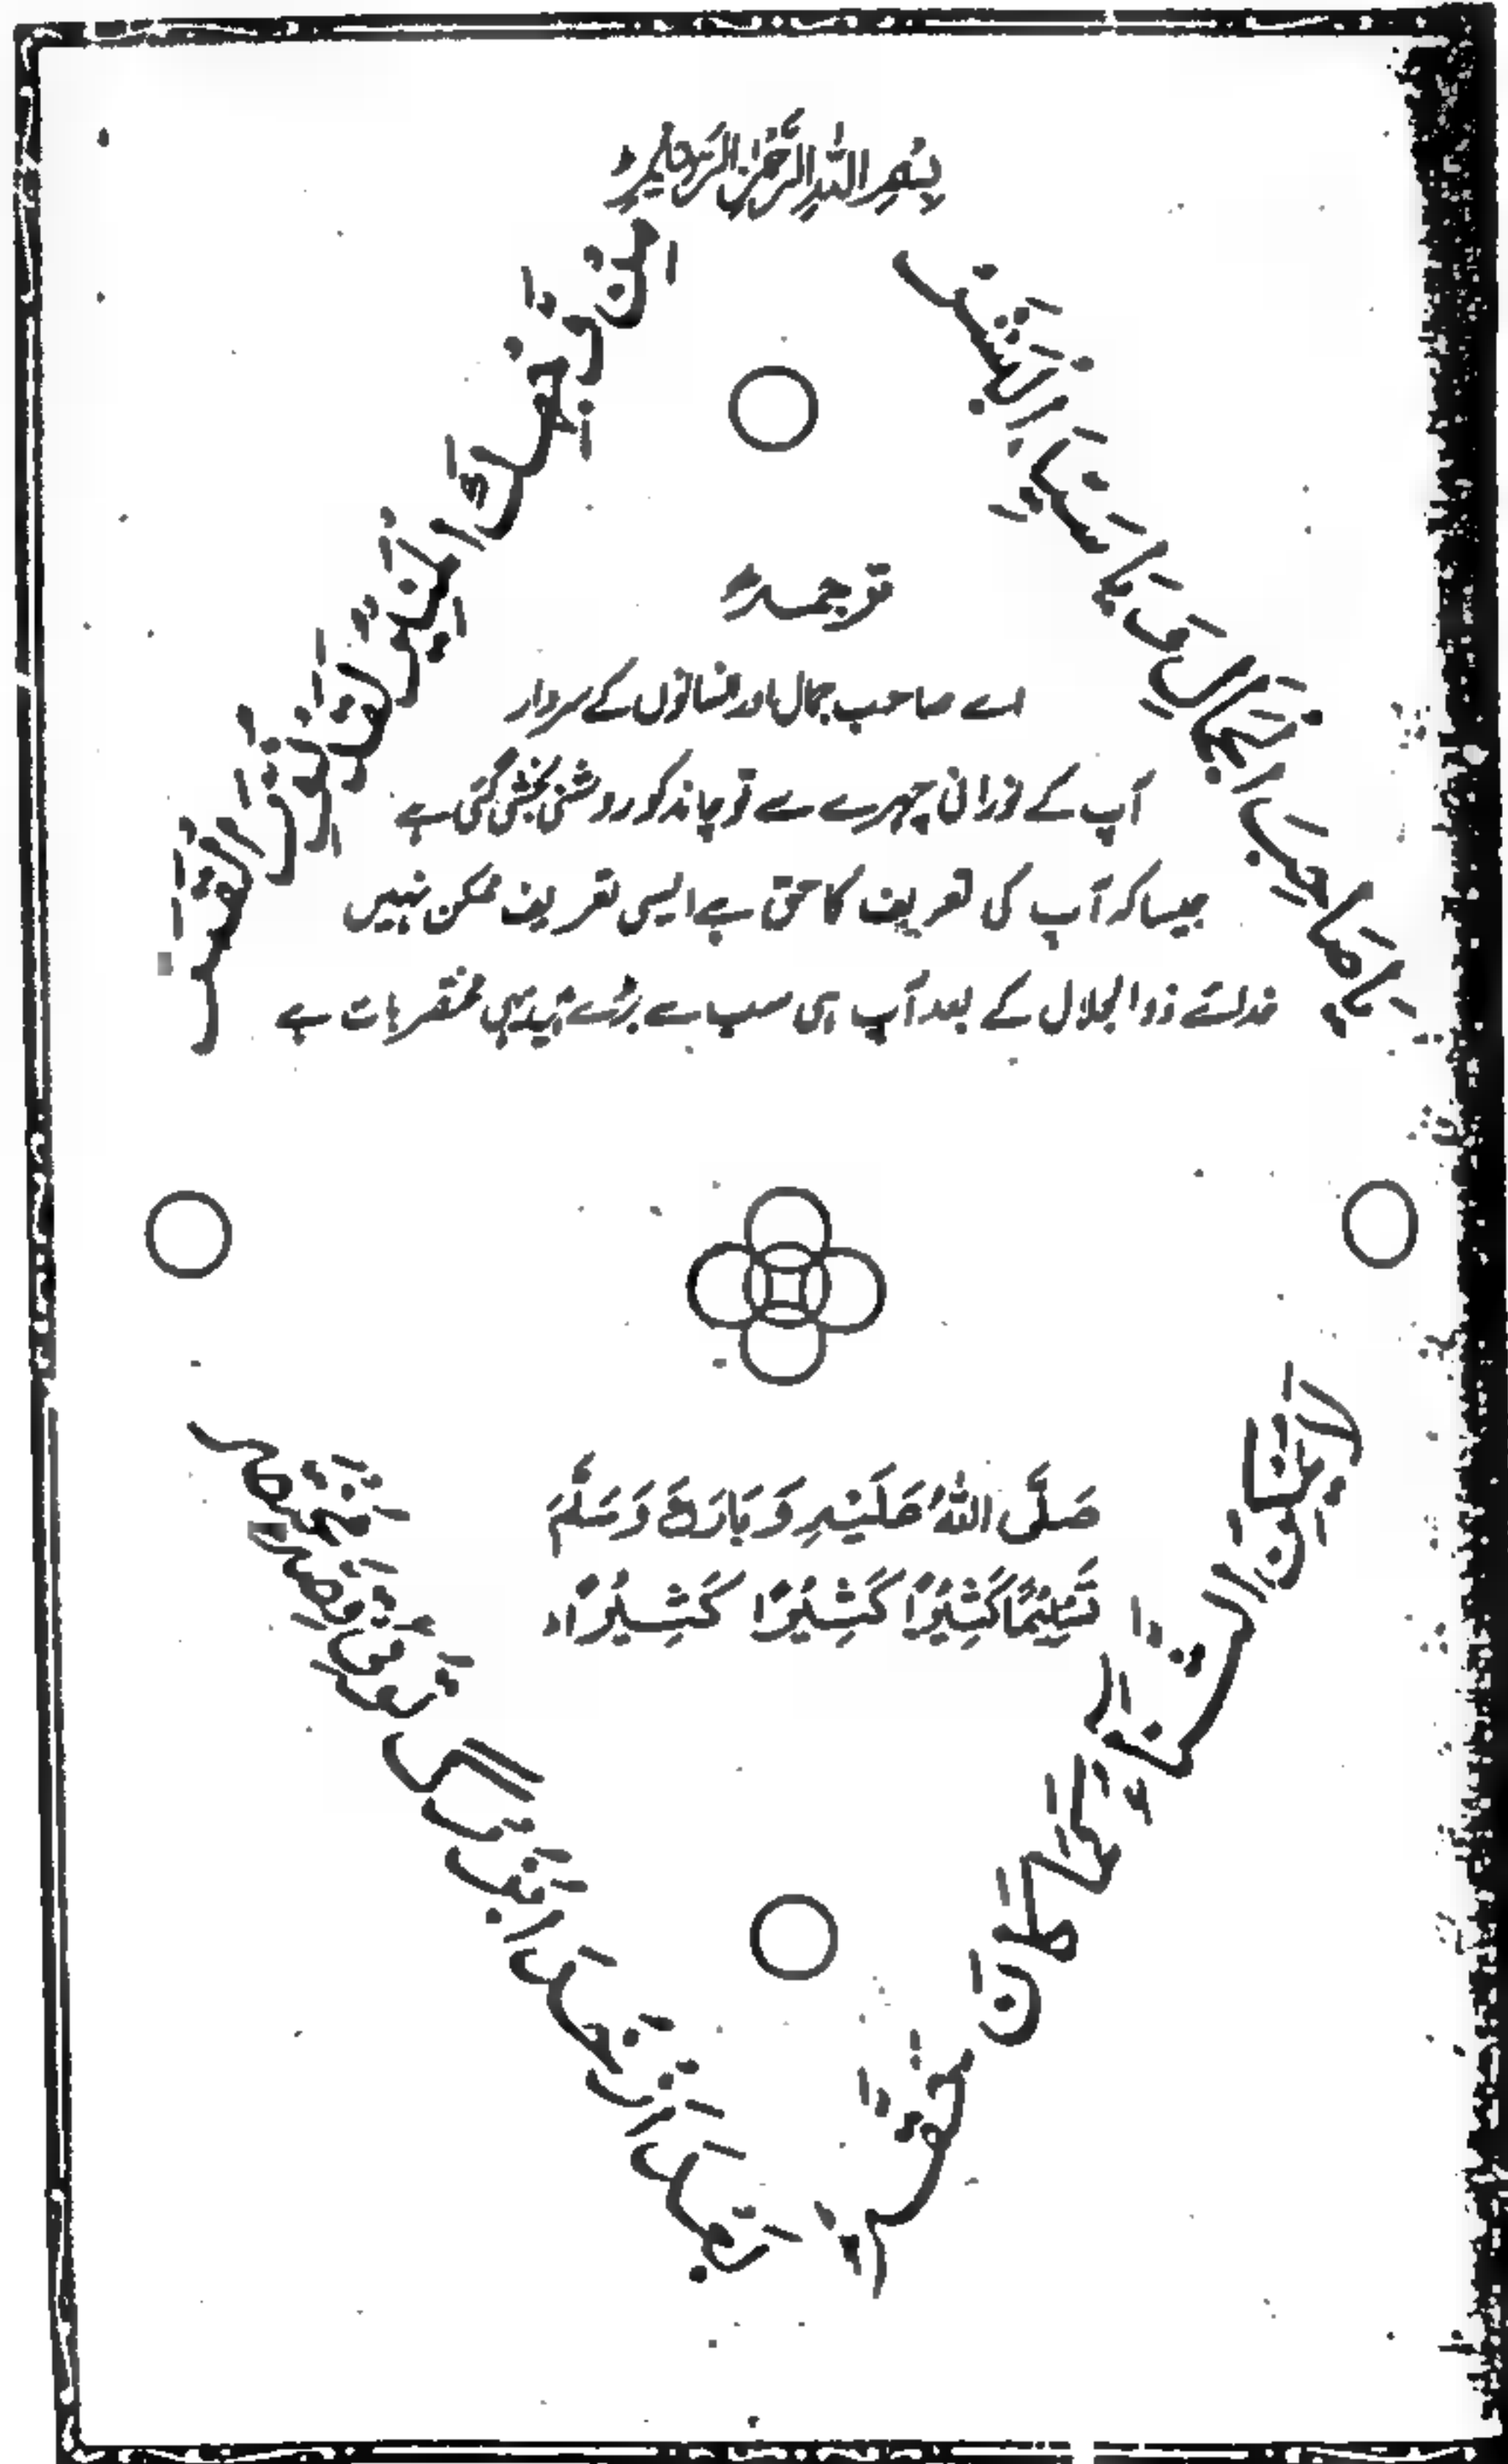 بِسْمِ اللهِ الرَّحْمٰنِ الرَّحِيْمِ
يَا صَاحِبَ الْجَمَالِ وَ يَا سَيِّدَ الْبَشَرِ
مِنْ وَّجْهِكَ الْمُنِيْرِ لَقَدْ نُوِّرَ الْقَمَرُ
ترجمہ
اے صاحب جمال اور انسانوں کے سردار
آپ کے نورانی چہرے سے تو چاند کو روشنی بخشی گئی ہے
جیسا کہ آپ کی تعریف کا حق ہے ایسی تعریف ممکن نہیں
خدائے ذوالجلال کے بعد آپ ہی سب سے بڑے ہیں یہی مختصر بات ہے
صَلَّى اللهُ عَلَيْهِ وَ بَارَكَ وَسَلَّمَ
تَسْلِيْمًا كَثِيْرًا كَثِيْرًا كَثِيْرًا
لَا يُمْكِنُ الثَّنَاءُ كَمَا كَانَ حَقُّهٗ
بعد از خدا بزرگ توئی قصہ مختصر